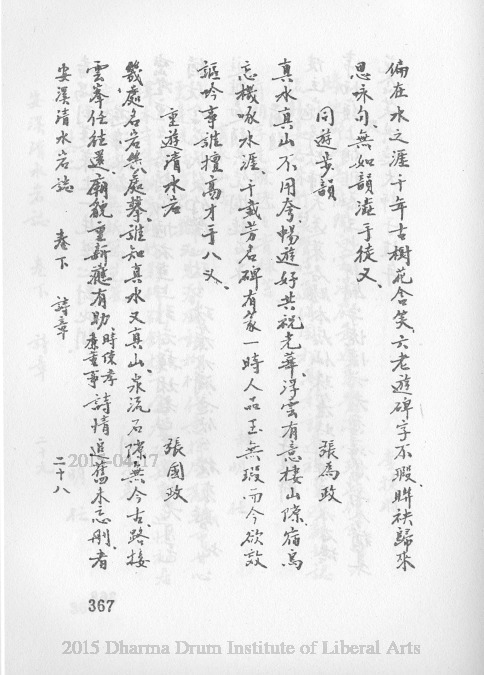 偏在水之涯、千年古樹花含笑、六老遊碑字不瑕、聯袂歸來
思咏句、無如韻澁手徒叉、
同遊步韻　張為政
真水真山不用夸、暢遊好共祝光華、浮雲有意棲山隙、宿鳥
忘機啄水涯、千載芳名碑有篆、一時人品玉無瑕、而今欲效
謳吟事、誰擅高才手八叉、
重遊清水岩　張國政
幾處名岩幾處攀、誰知真水又真山、泉流石隙無今古、路接
雲峯任往還、廟貌重新應有助、時侯孝廉董事 詩情追舊未忘刪、者
安溪清水岩誌　卷下　詩章　二十八
367
2015-04-17
2015 Dharma Drum Institute of Liberal Arts